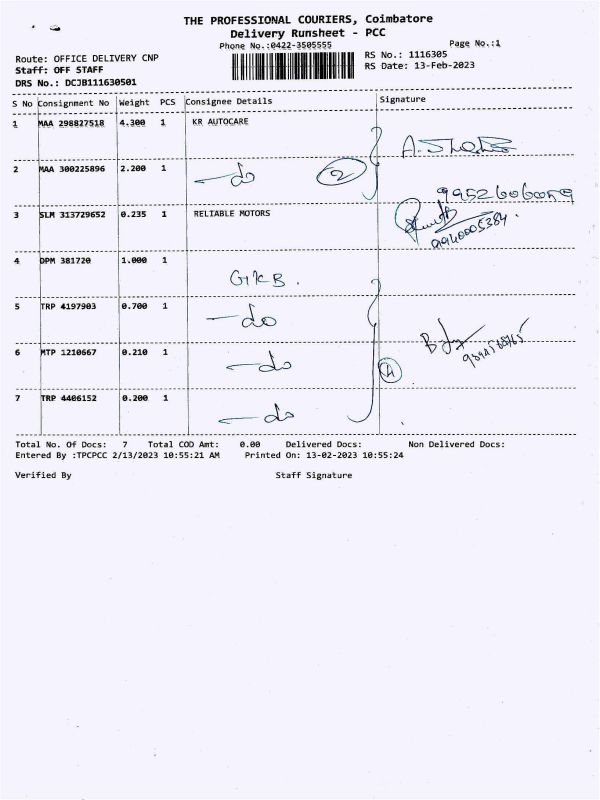 THE PROFESSIONAL COURIERS, Coimbatore
Delivery Runsheet - PCC
Phone No.:0422-3505555
Page No.:1
Route: OFFICE DELIVERY CNP
RS No.: 1116305
Staff: OFF STAFF
RS Date: 13-Feb-2023
DRS No.: DCJB111630501
S No Consignment No Weight PCS Consignee Details Signature
1 MAA 298827518 4.300 1 KR AUTOCARE
2 MAA 300225896 2.200 1 - do 2
9952606059
3 SLM 313729652 0.235 1 RELIABLE MOTORS
9940005384
4 DPM 381720 1.000 1
GKB.
5 TRP 4197903 0.700 1 - do
6 MTP 1210667 0.210 1 - do 4
7 TRP 4406152 0.200 1 - do
Total No. Of Docs: 7 Total COD Amt: 0.00 Delivered Docs: Non Delivered Docs:
Entered By :TPCPCC 2/13/2023 10:55:21 AM Printed On: 13-02-2023 10:55:24
Verified By Staff Signature